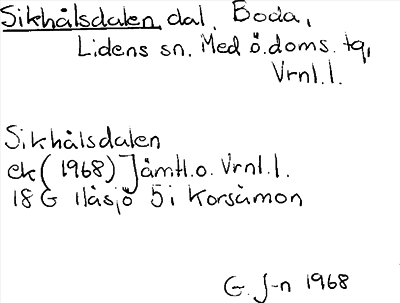 Sikhålsdalen dal. Boda,
Lidens sn. Med ö. doms. tg,
Vrnl. l.
Sikhålsdalen
ek (1968) Jämtl. o. Vrnl. l.
18 G Ilåsjö 5 i Korsåmon
G. J-n 1968